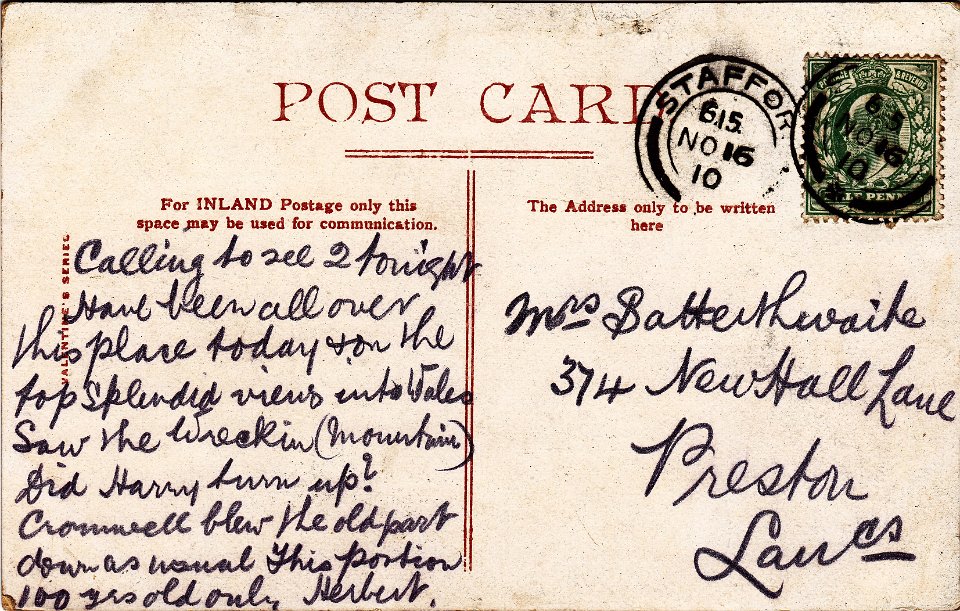 POST CARD
STAFFOR
6.15.
NO 16
10
6.15
NO 16
10
POSTAGE & REVENUE
For INLAND Postage only this
space may be used for communication.
The Address only to be written
here
VALENTINE'S SERIES
Calling to see 2 tonight
Have been all over
this place today & on the
top splendid views into Wales
Saw the Wreckin (Mountain)
Did Harry turn up?
Cromwell blew the old part
down as usual This portion
100 yrs old only. Herbert.
Mrs Batterthwaite
374 New Hall Lane
Preston
Lancs